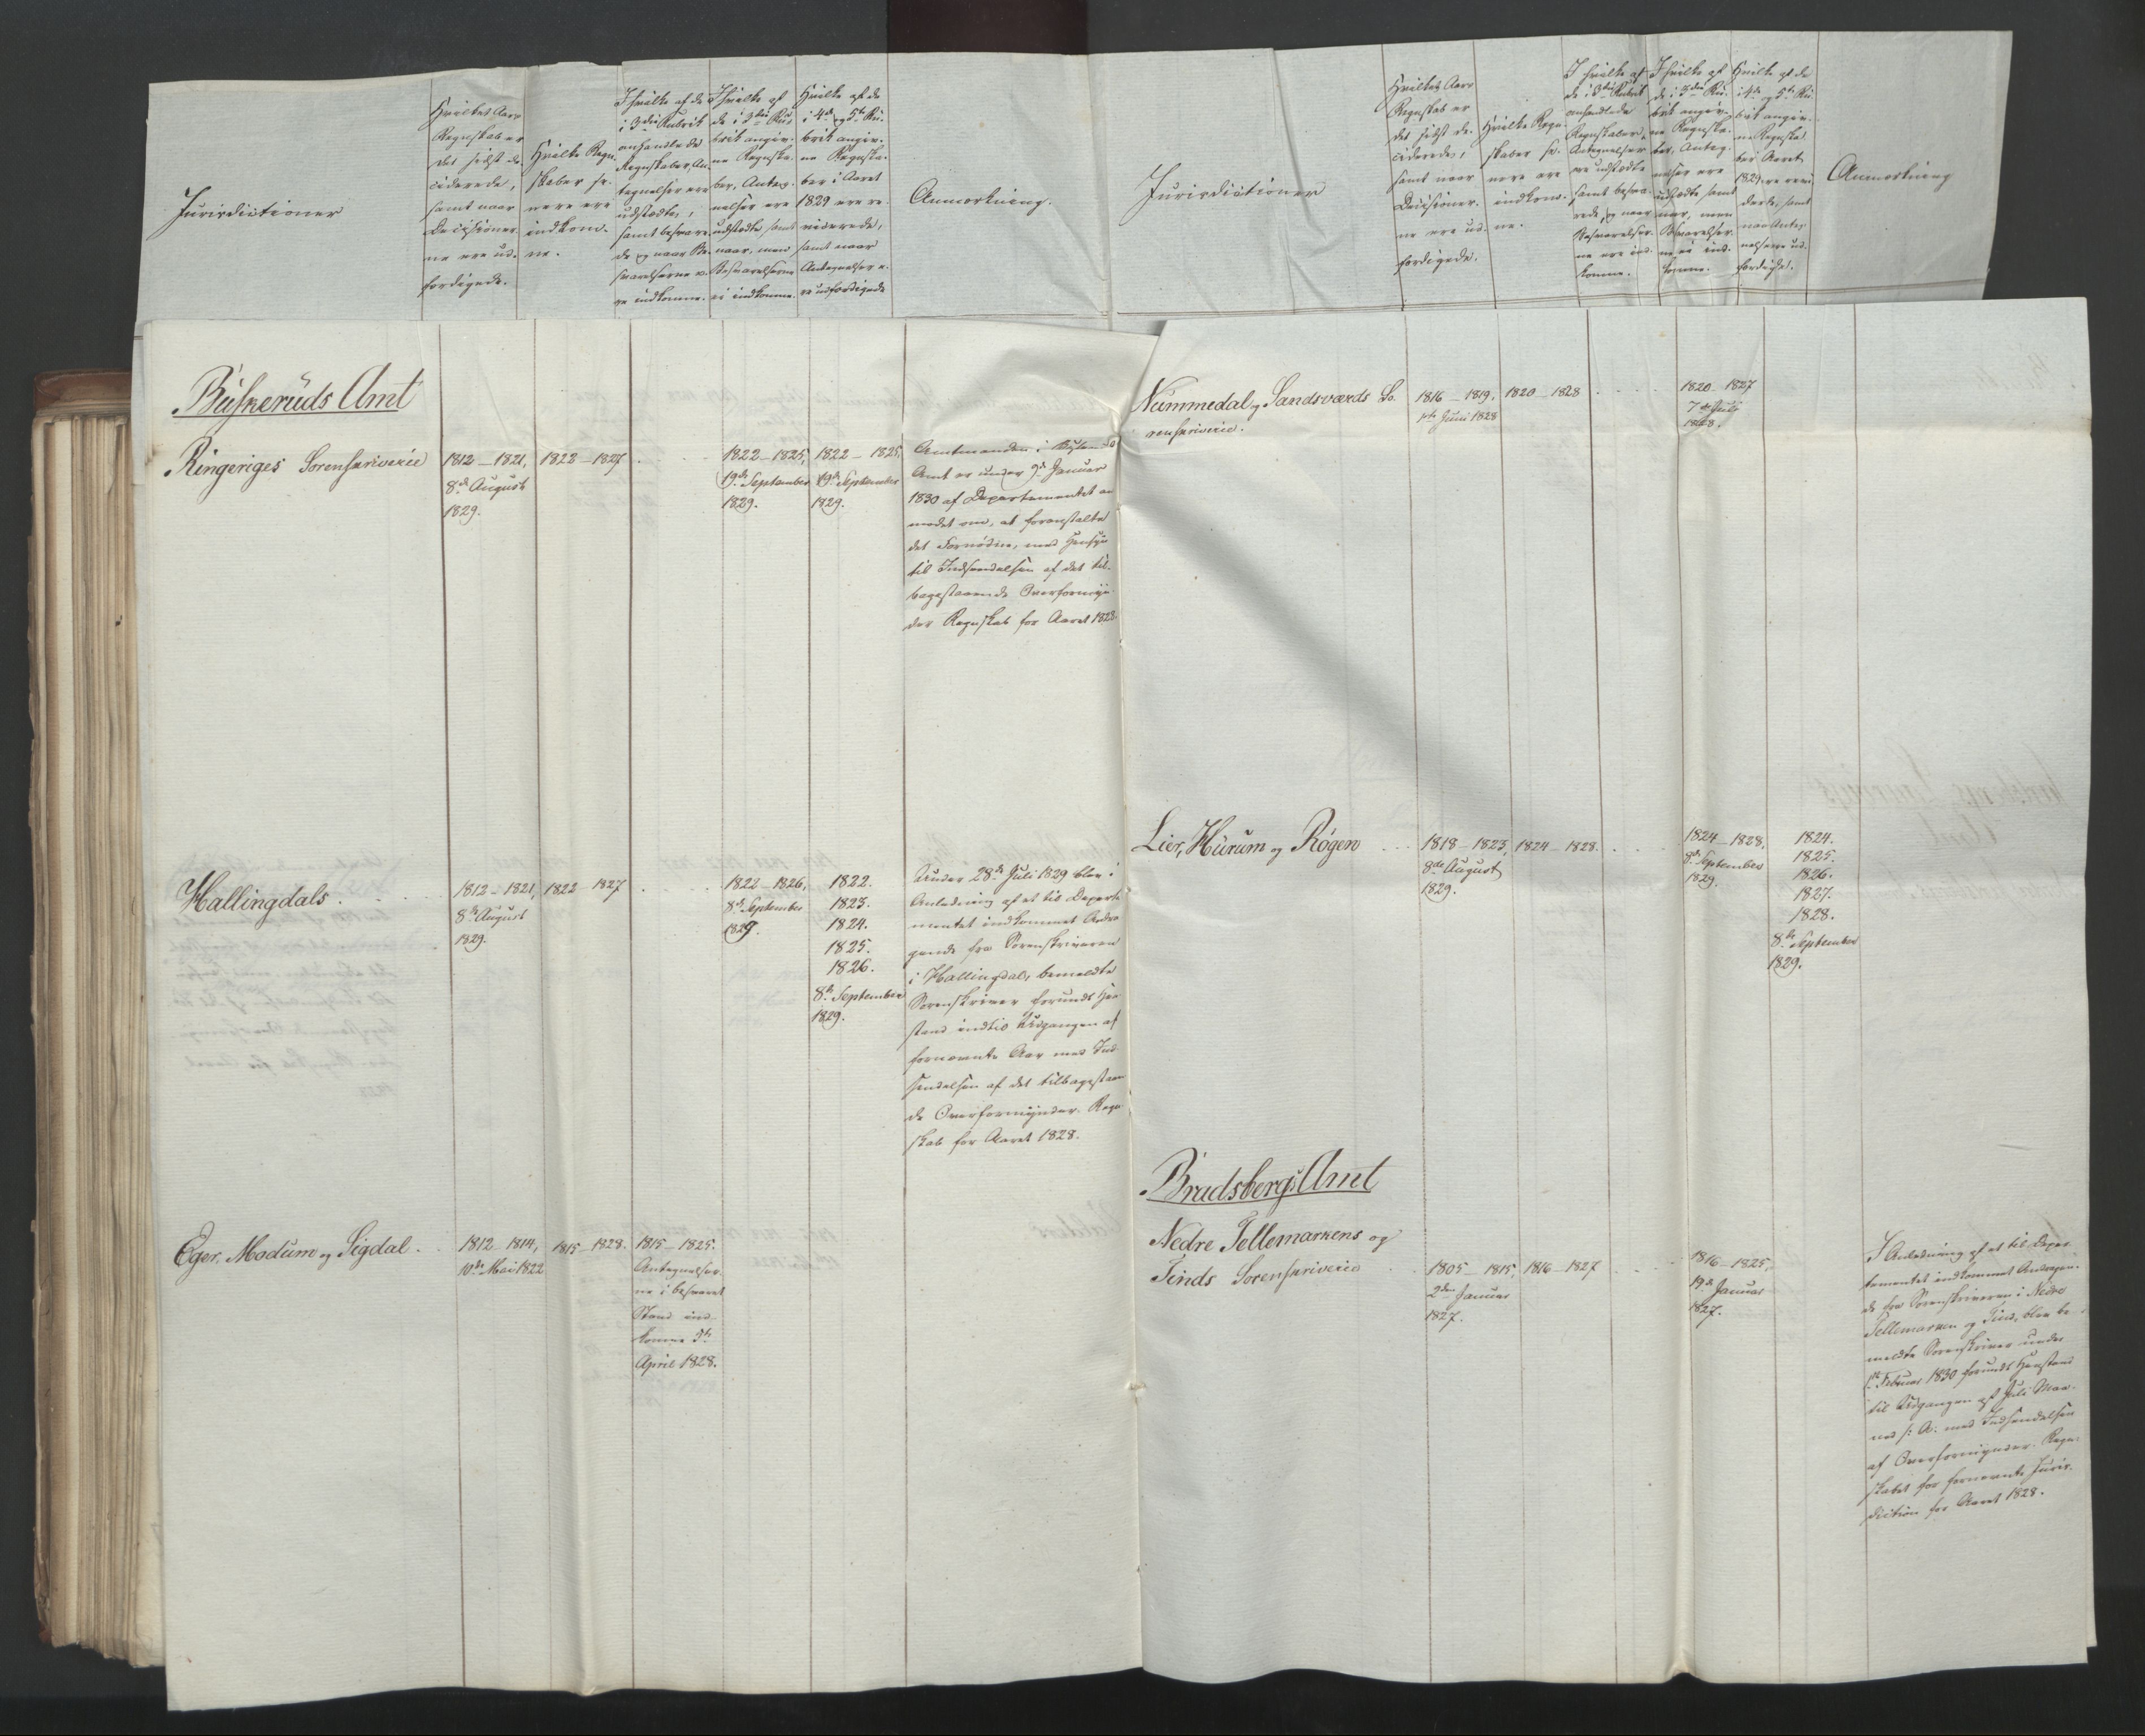 Jurisdictioner
Hvilket Aars
Regnskab er
det sidst de-
ciderede,
samt naar
Decisioner-
ne ere ud-
færdigede.
Hvilke Regn-
skaber se-
nere ere
indkom-
ne.
I hvilke af de
i 3die Rubrik
anhandlede
Regnskaber, An-
tegnelser ere
udstædte,
samt besvare-
de og naar Be-
svarelserne e-
re indkomne.
I hvilke af
de i 3die Ru-
brik angiv-
ne Regnska-
ber, Anteg-
nelser ere
udstædte samt
naar, men
Besvarelserne
ei indkomne.
Hvilke af de
i 4de og 5te Ru-
brik angiv-
ne Regnska-
ber i Aaret
1829 ere re-
viderede,
samt naar
Antegnelser e-
re udfærdigede
Anmærkning.
Buskeruds Amt
Ringeriges Sorenskriverie
1812 – 1821,
8de August
1829.
1822 – 1827
1822 – 1825,
19de September
1829.
1822 – 1825,
19de September
1829.
Amtmanden i Buskeruds
Amt er under 9de Januar
1830 af Departementet an-
modet om, at foranstalte
det Fornødne, med Hensyn
til Indsendelsen af det til-
bagestaaende Overformyn-
der Regnskab for Aaret 1828.
Hallingdals
1812 – 1821,
8de August
1829.
1822 – 1827
1822 – 1826,
8de September
1829.
1822.
1823.
1824.
1825.
1826.
8de September
1829.
Under 28de Juli 1829 blev i
Anledning af et til Departe-
mentet indkommet Andra-
gende fra Sorenskriveren
i Hallingdal, bemeldte
Sorenskriver forundt Hen-
stand indtil Udgangen af
fornævnte Aar med Ind-
sendelsen af det tilbagestaaen-
de Overformynder-Regn-
skab for Aaret 1828.
Eger, Modum og Sigdal
1812 – 1814,
10de Mai 1822
1815 – 1828.
1815 – 1825.
Antegnelser-
ne i besvaret
Stand ind-
komne 5te
April 1828.
Jurisdictioner
Hvilket Aars
Regnskab er
det sidst de-
ciderede,
samt naar
Decisioner-
ne ere ud-
færdigede.
Hvilke Regn-
skaber se-
nere ere
indkom-
ne.
I hvilke af
de i 3die Rubrik
anhandlede
Regnskaber,
Antegnelser
ere udstædte
samt besva-
rede, og naar
Besvarelser-
ne ere ind-
komne.
I hvilke af
de i 3die Ru-
brik angiv-
ne Regnska-
ber, Anteg-
nelser ere
udstædte samt
naar, men
Besvarelser-
ne ei ind-
komne.
Hvilke af de
i 4de og 5te Ru-
brik angiv-
ne Regnska-
ber i Aaret
1829 ere revi-
derede, samt
naar Anteg-
nelserne ud-
færdiget.
Anmærkning
Nummedal og Sandsværds So-
renskriverie.
1816 – 1819,
1ste Juni 1828
1820 – 1828
1820 – 1827
7de Juli
1828.
Lier, Hurum og Røgen
1818 – 1823,
8de August
1829.
1824 – 1828.
1824 – 1828,
8de September
1829.
1824.
1825.
1826.
1827.
1828.
8de September
1829.
Bradsbergs Amt
Nedre Tellemarkens og
Tinds Sorenskriverie
1805 – 1815,
2den Januar
1827.
1816 – 1827
1816 – 1825,
19de Januar
1827.
I Anledning af et til Depar-
tementet indkommet Andragen-
de fra Sorenskriveren i Nedre
Tellemarken og Tind, blev be-
meldte Sorenskriver under
Februar 1830 forundt Henstand
til Udgangen af Juli Maa-
ned s: A: med Indsendelsen
af Overformynder-Regn-
skabet for fornævnte Juris-
diction for Aaret 1828.